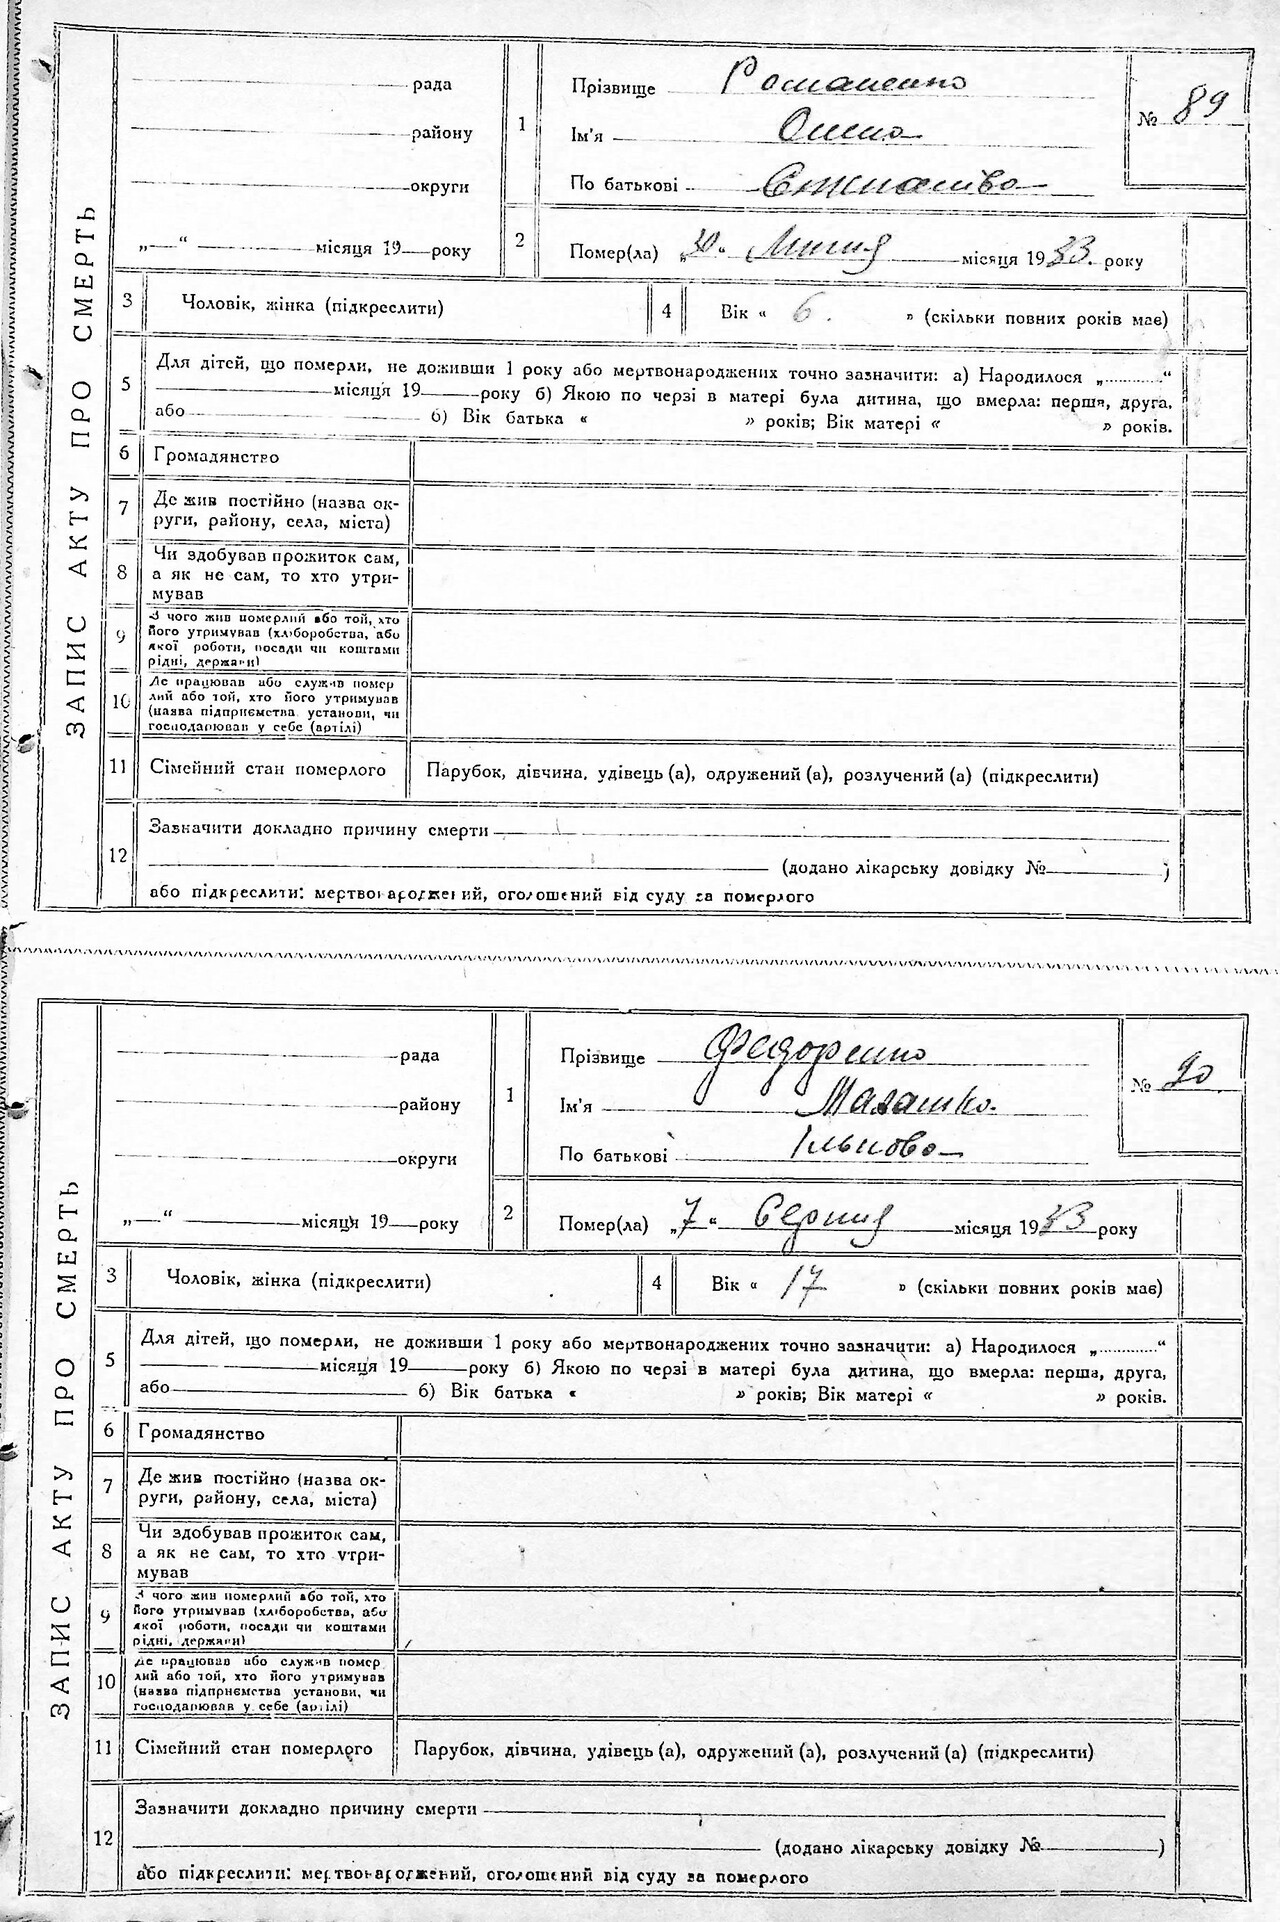 ЗАПИС АКТУ ПРО СМЕРТЬ
рада
району
округи
„ “ місяця 19 року
1
Прізвище Романенко
Ім'я Олена
По батькові
№ 89
2
Помер(ла) „30“ Липня місяця 1933 року
3
Чоловік, жінка (підкреслити)
4
Вік « 6. » (скільки повних років має)
5
Для дітей, що померли, не доживши 1 року або мертвонароджених точно зазначити: а) Народилося „ “
місяця 19 року б) Якою по черзі в матері була дитина, що вмерла: перша, друга,
або б) Вік батька « » років; Вік матері « » років.
6
Громадянство
7
Де жив постійно (назва ок-
руги, району, села, міста)
8
Чи здобував прожиток сам,
а як не сам, то хто утри-
мував
9
З чого жив померлий або той, хто
його утримував (хліборобства, або
якої роботи, посади чи коштами
рідні, держави)
10
Де працював або служив помер
лий або той, хто його утримував
(назва підприємства установи, чи
господарював у себе (артілі)
11
Сімейний стан померлого
Парубок, дівчина, удівець (а), одружений (а), розлучений (а) (підкреслити)
12
Зазначити докладно причину смерти
(додано лікарську довідку № )
або підкреслити: мертвонароджений, оголошений від суду за померлого
ЗАПИС АКТУ ПРО СМЕРТЬ
рада
району
округи
„ “ місяця 19 року
1
Прізвище Федоренко
Ім'я Малашка.
По батькові Ількова
№ 90
2
Помер(ла) „7“ Серпня місяця 1933 року
3
Чоловік, жінка (підкреслити)
4
Вік « 17 » (скільки повних років має)
5
Для дітей, що померли, не доживши 1 року або мертвонароджених точно зазначити: а) Народилося „ “
місяця 19 року б) Якою по черзі в матері була дитина, що вмерла: перша, друга,
або б) Вік батька « » років; Вік матері « » років.
6
Громадянство
7
Де жив постійно (назва ок-
руги, району, села, міста)
8
Чи здобував прожиток сам,
а як не сам, то хто утри-
мував
9
З чого жив померлий або той, хто
його утримував (хліборобства, або
якої роботи, посади чи коштами
рідні, держави)
10
Де працював або служив помер
лий або той, хто його утримував
(назва підприємства установи, чи
господарював у себе (артілі)
11
Сімейний стан померлого
Парубок, дівчина, удівець (а), одружений (а), розлучений (а) (підкреслити)
12
Зазначити докладно причину смерти
(додано лікарську довідку № )
або підкреслити: мертвонароджений, оголошений від суду за померлого